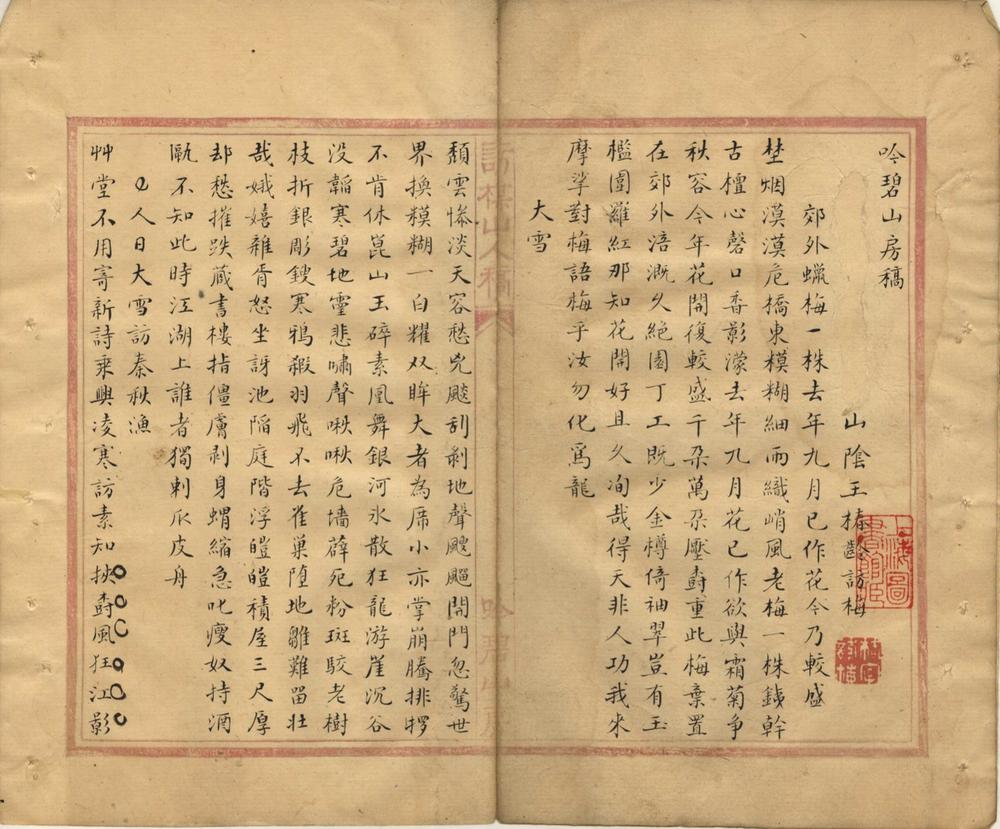 吟碧山房稿
山陰王椿齡訪梅
郊外蠟梅一株去年九月已作花今乃較盛
埜烟漠漠危橋東模糊細雨織峭風老梅一株鐵幹
古檀心磬口香影濛去年九月花已作欲與霜菊爭
秋容今年花開復較盛千朵萬朵壓樹重此梅棄置
在郊外涪溉久絕園丁工既少金樽倚袖翠豈有玉
檻圍羅紅那知花開好且久洵哉得天非人功我來
摩挲對梅語梅乎汝勿化爲龍
大雪
頽雲慘淡天容愁兇飈刮剝地聲颼飀開門忽驚世
界換糢糊一白耀双眸大者為席小亦掌崩騰排拶
不肯休崑山玉碎素凰舞銀河氷散狂龍游崖沉谷
没韜寒碧地靈悲嘯聲啾啾危墻薜死粉斑駮老樹
枝折銀彫鎪寒鴉鎩羽飛不去雀巢墮地雛難留壮
哉娥嬉雜胥怒坐訝池陷庭階浮皚皚積屋三尺厚
却愁摧跌藏書樓指僵膚剥身蝟縮急叱瘦奴持酒
甌不知此時江湖上誰者獨刺瓜皮舟
人日大雪訪秦秋漁
艸堂不用寄新詩乘興凌寒訪素知挾樹風狂江影
訪楳山人稿
吟碧山房